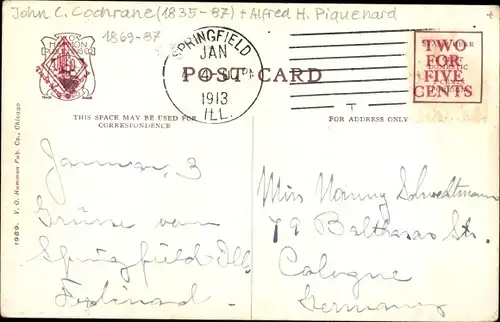 John C. Cochrane (1835-87) + Alfred H. Piquenard
1869-87
SPRINGFIELD
JAN
4
1913
ILL.
POST CARD
TWO
FOR
FIVE
CENTS
THIS SPACE MAY BE USED FOR
CORRESPONDENCE
FOR ADDRESS ONLY
1989. V. O. Hammon Pub. Co., Chicago
January 3
Grüsse vom
Springfield Ill.
Ferdinand
Miss Nanny
79 Balthasar Str.
Cologne
Germany